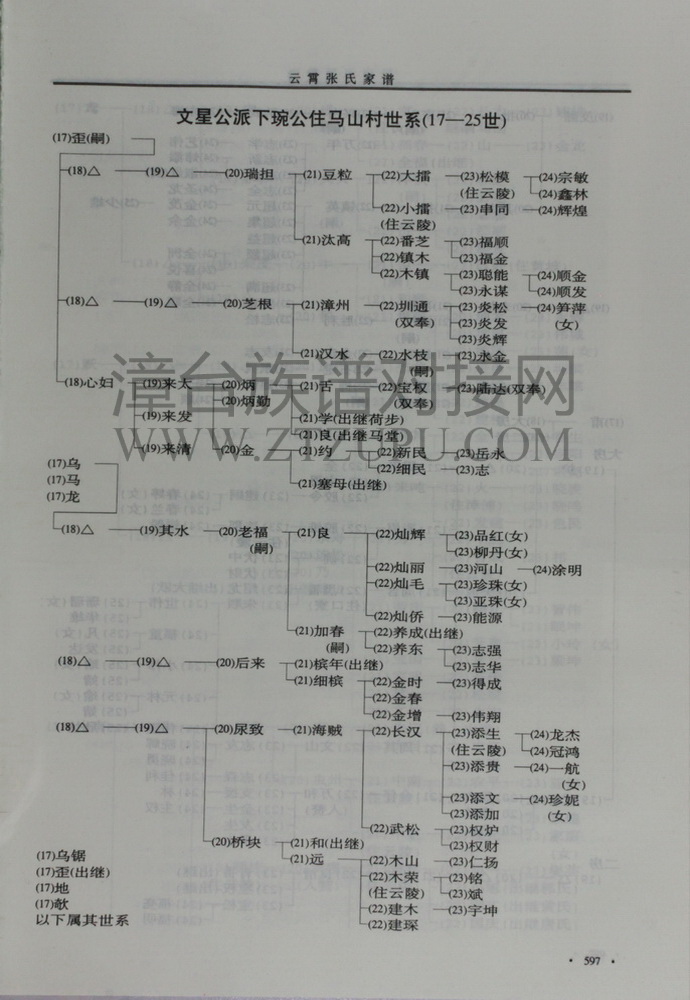 云霄张氏家谱
文星公派下琬公住马山村世系(17—25世)
(17)歪(嗣)
(18)△ (19)△ (20)瑞担 (21)豆粒 (22)大擂 (23)松模 (24)宗敏
(住云陵) (24)鑫林
(22)小擂 (23)串同 (24)辉煌
(住云陵)
(21)汰高 (22)番芝 (23)福顺
(22)镇木 (23)福金
(22)木镇 (23)聪能 (24)顺金
(23)永谋 (24)顺发
(18)△ (19)△ (20)芝根 (21)漳州 (22)圳通 (23)炎松 (24)笋萍
(双奉) (23)炎发 (女)
(23)炎辉
(21)汉水 (22)水枝 (23)永金
(嗣)
(18)心妇 (19)来太 (20)炳 (21)舌 (22)宝权 (23)陆达(双奉)
(20)炳勤 (双奉)
(19)来发 (21)学(出继荷步)
(21)良(出继马堂)
(19)来清 (20)金 (21)约 (22)新民 (23)岳永
(17)乌 (22)细民 (23)志
(17)马 (21)塞母(出继)
(17)龙
(18)△ (19)其水 (20)老福 (21)良 (22)灿辉 (23)品红(女)
(嗣) (23)柳丹(女)
(22)灿丽 (23)河山 (24)涂明
(22)灿毛 (23)珍珠(女)
(23)亚珠(女)
(22)灿侨 (23)能源
(21)加春 (22)养成(出继)
(嗣) (22)养东 (23)志强
(18)△ (19)△ (20)后来 (21)槟年(出继) (23)志华
(21)细槟 (22)金时 (23)得成
(22)金春
(22)金增 (23)伟翔
(18)△ (19)△ (20)尿致 (21)海贼 (22)长汉 (23)添生 (24)龙杰
(住云陵) (24)冠鸿
(23)添贵 (24)一航
(女)
(23)添文 (24)珍妮
(23)添加 (女)
(22)武松 (23)权炉
(20)桥块 (21)和(出继) (23)权财
(17)乌锯 (21)远 (22)木山 (23)仁扬
(17)歪(出继) (22)木荣 (23)铭
(17)地 (住云陵) (23)斌
(17)欹 (22)建木 (23)宇坤
以下属其世系 (22)建琛
漳台族谱对接网
WWW.ZTZUPU.COM
·597·